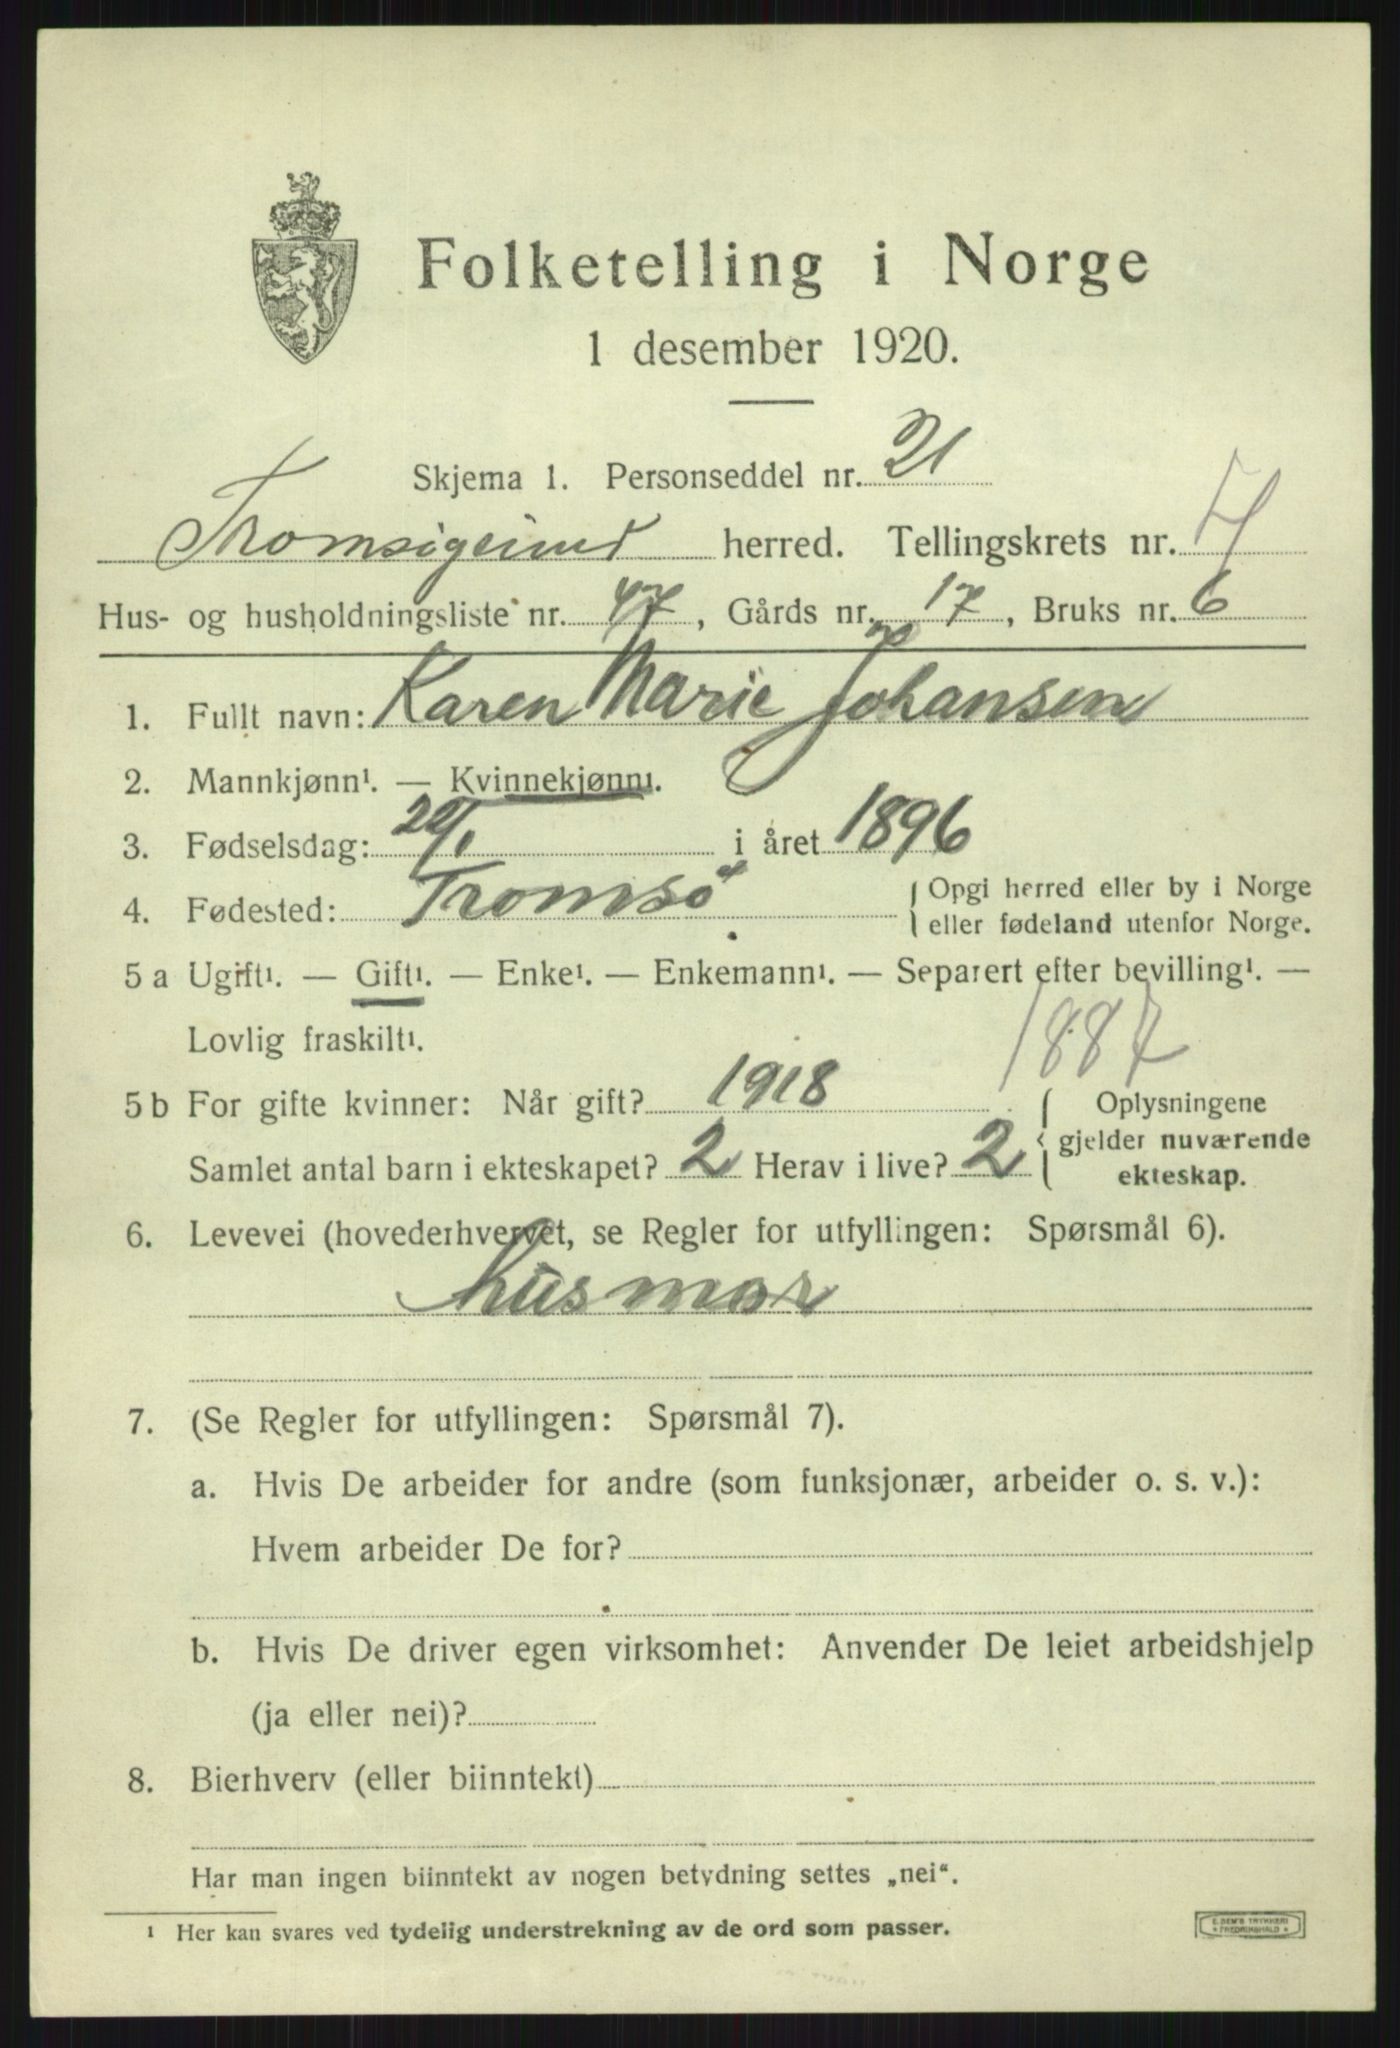 Folketelling i Norge
1 desember 1920.
Skjema 1. Personseddel nr. 21
Tromsøysund herred. Tellingskrets nr. 7
Hus- og husholdningsliste nr. 47, Gårds nr. 17, Bruks nr. 6
1. Fullt navn: Karen Marie Johansen
2. Mannkjønn¹. — Kvinnekjønn¹.
3. Fødselsdag: 20/1 i året 1896
4. Fødested: Tromsö { Opgi herred eller by i Norge
eller fødeland utenfor Norge.
5 a Ugift¹. — Gift¹. — Enke¹. — Enkemann¹. — Separert efter bevilling¹. —
Lovlig fraskilt¹.
1887
5 b For gifte kvinner: Når gift? 1918 { Oplysningene
gjelder nuværende
ekteskap.
Samlet antal barn i ekteskapet? 2 Herav i live? 2
6. Levevei (hovederhvervet, se Regler for utfyllingen: Spørsmål 6).
Husmor
7. (Se Regler for utfyllingen: Spørsmål 7).
a. Hvis De arbeider for andre (som funksjonær, arbeider o. s. v.):
Hvem arbeider De for?
b. Hvis De driver egen virksomhet: Anvender De leiet arbeidshjelp
(ja eller nei)?
8. Bierhverv (eller biinntekt)
Har man ingen biinntekt av nogen betydning settes „nei“.
¹ Her kan svares ved tydelig understrekning av de ord som passer.
E. SEM'S TRYKKERI
FREDRIKSHALD